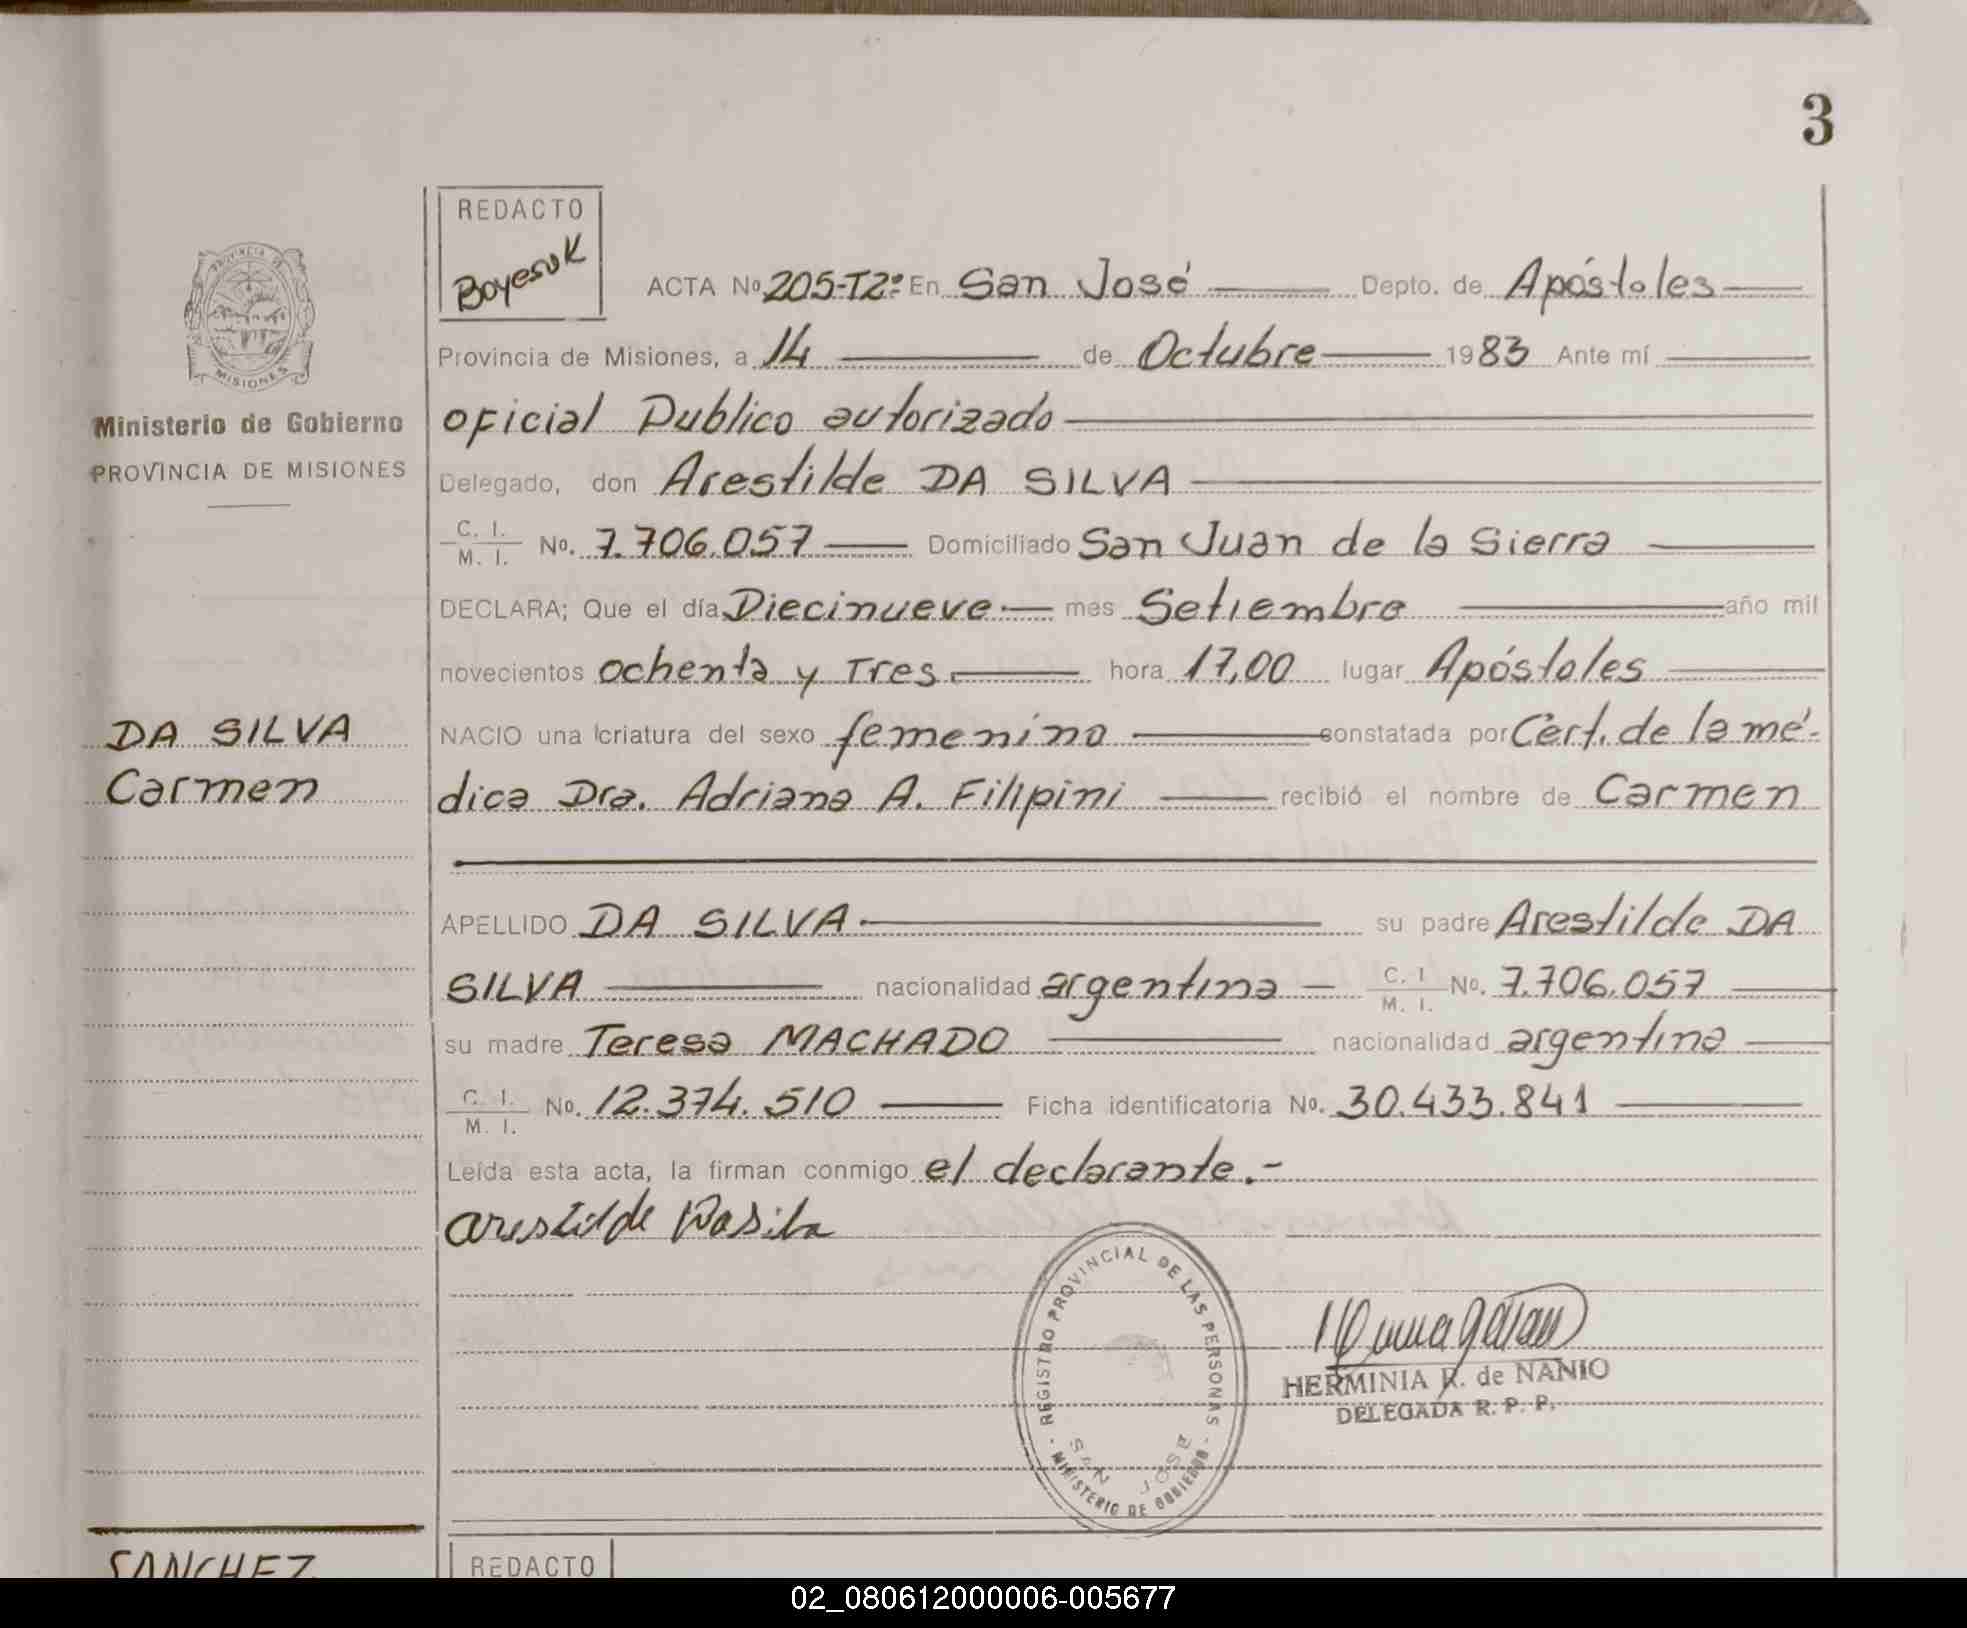 3
REDACTO
Boyesuk
ACTA Nº 205-T2º En San José Depto. de Apóstoles
PROVINCIA DE MISIONES
Ministerio de Gobierno
PROVINCIA DE MISIONES
Provincia de Misiones, a 14 de Octubre 1983 Ante mí
oficial Publico autorizado
Delegado, don Arestilde DA SILVA
C. I. M. I. Nº. 7.706.057 Domiciliado San Juan de la Sierra
DECLARA; Que el día Diecinueve mes Setiembre año mil
novecientos ochenta y Tres hora 17,00 lugar Apóstoles
DA SILVA
Carmen
NACIO una criatura del sexo femenino constatada por Cert. de la mé-
dica Dra. Adriana A. Filipini recibió el nombre de Carmen
APELLIDO DA SILVA su padre Arestilde DA
SILVA nacionalidad argentina C. I. M. I. Nº. 7.706.057
su madre Teresa MACHADO nacionalidad argentina
C. I. M. I. Nº. 12.374.510 Ficha identificatoria Nº. 30.433.841
Leída esta acta, la firman conmigo el declarante.-
arestilde Dasilva
REGISTRO PROVINCIAL DE LAS PERSONAS
SAN JOSE
MINISTERIO DE GOBIERNO
HERMINIA R. de NANIO
DELEGADA R. P. P.
SANCHEZ
REDACTO
02_080612000006-005677